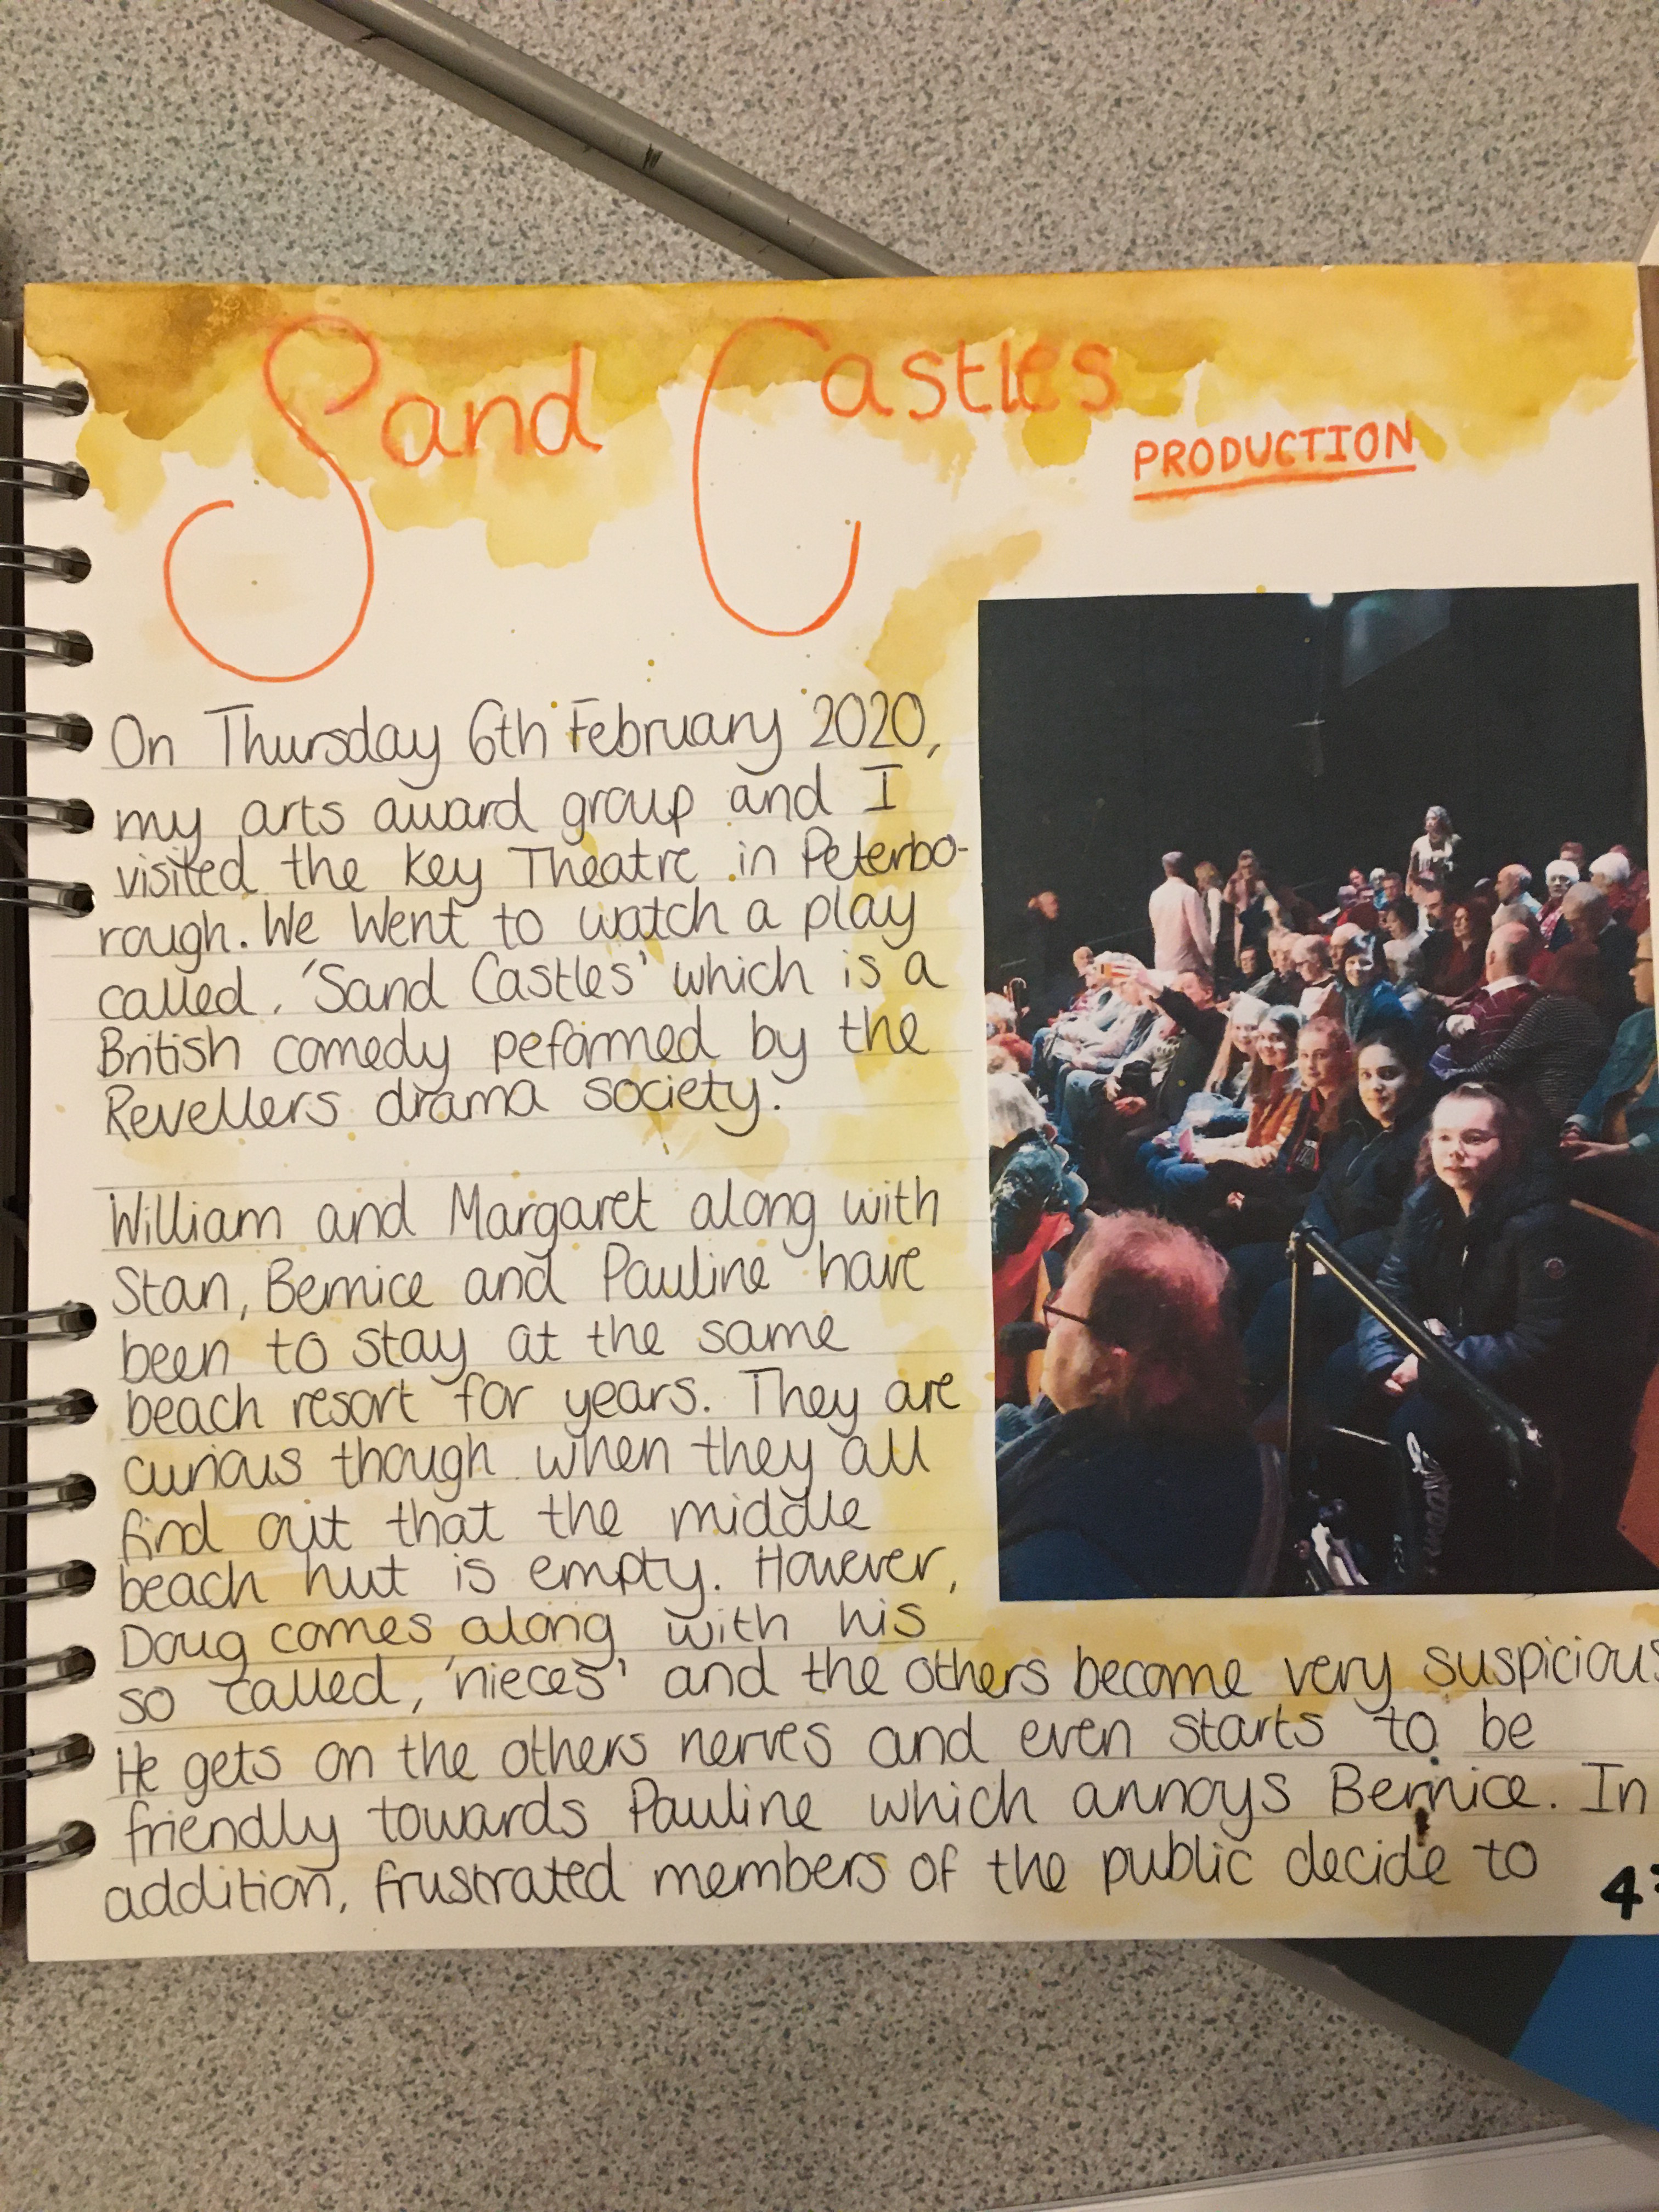 Sand Castles
PRODUCTION
On Thursday 6th February 2020,
my arts award group and I
visited the Key Theatre in Peterbo-
rough. We went to watch a play
called, 'Sand Castles' which is a
British comedy peformed by the
Revellers drama society.
William and Margaret along with
Stan, Bernice and Pauline have
been to stay at the same
beach resort for years. They are
curious though when they all
find out that the middle
beach hut is empty. However,
Doug comes along with his
so called, 'nieces' and the others become very suspicious
He gets on the others nerves and even starts to be
friendly towards Pauline which annoys Bernice. In
addition, frustrated members of the public decide to